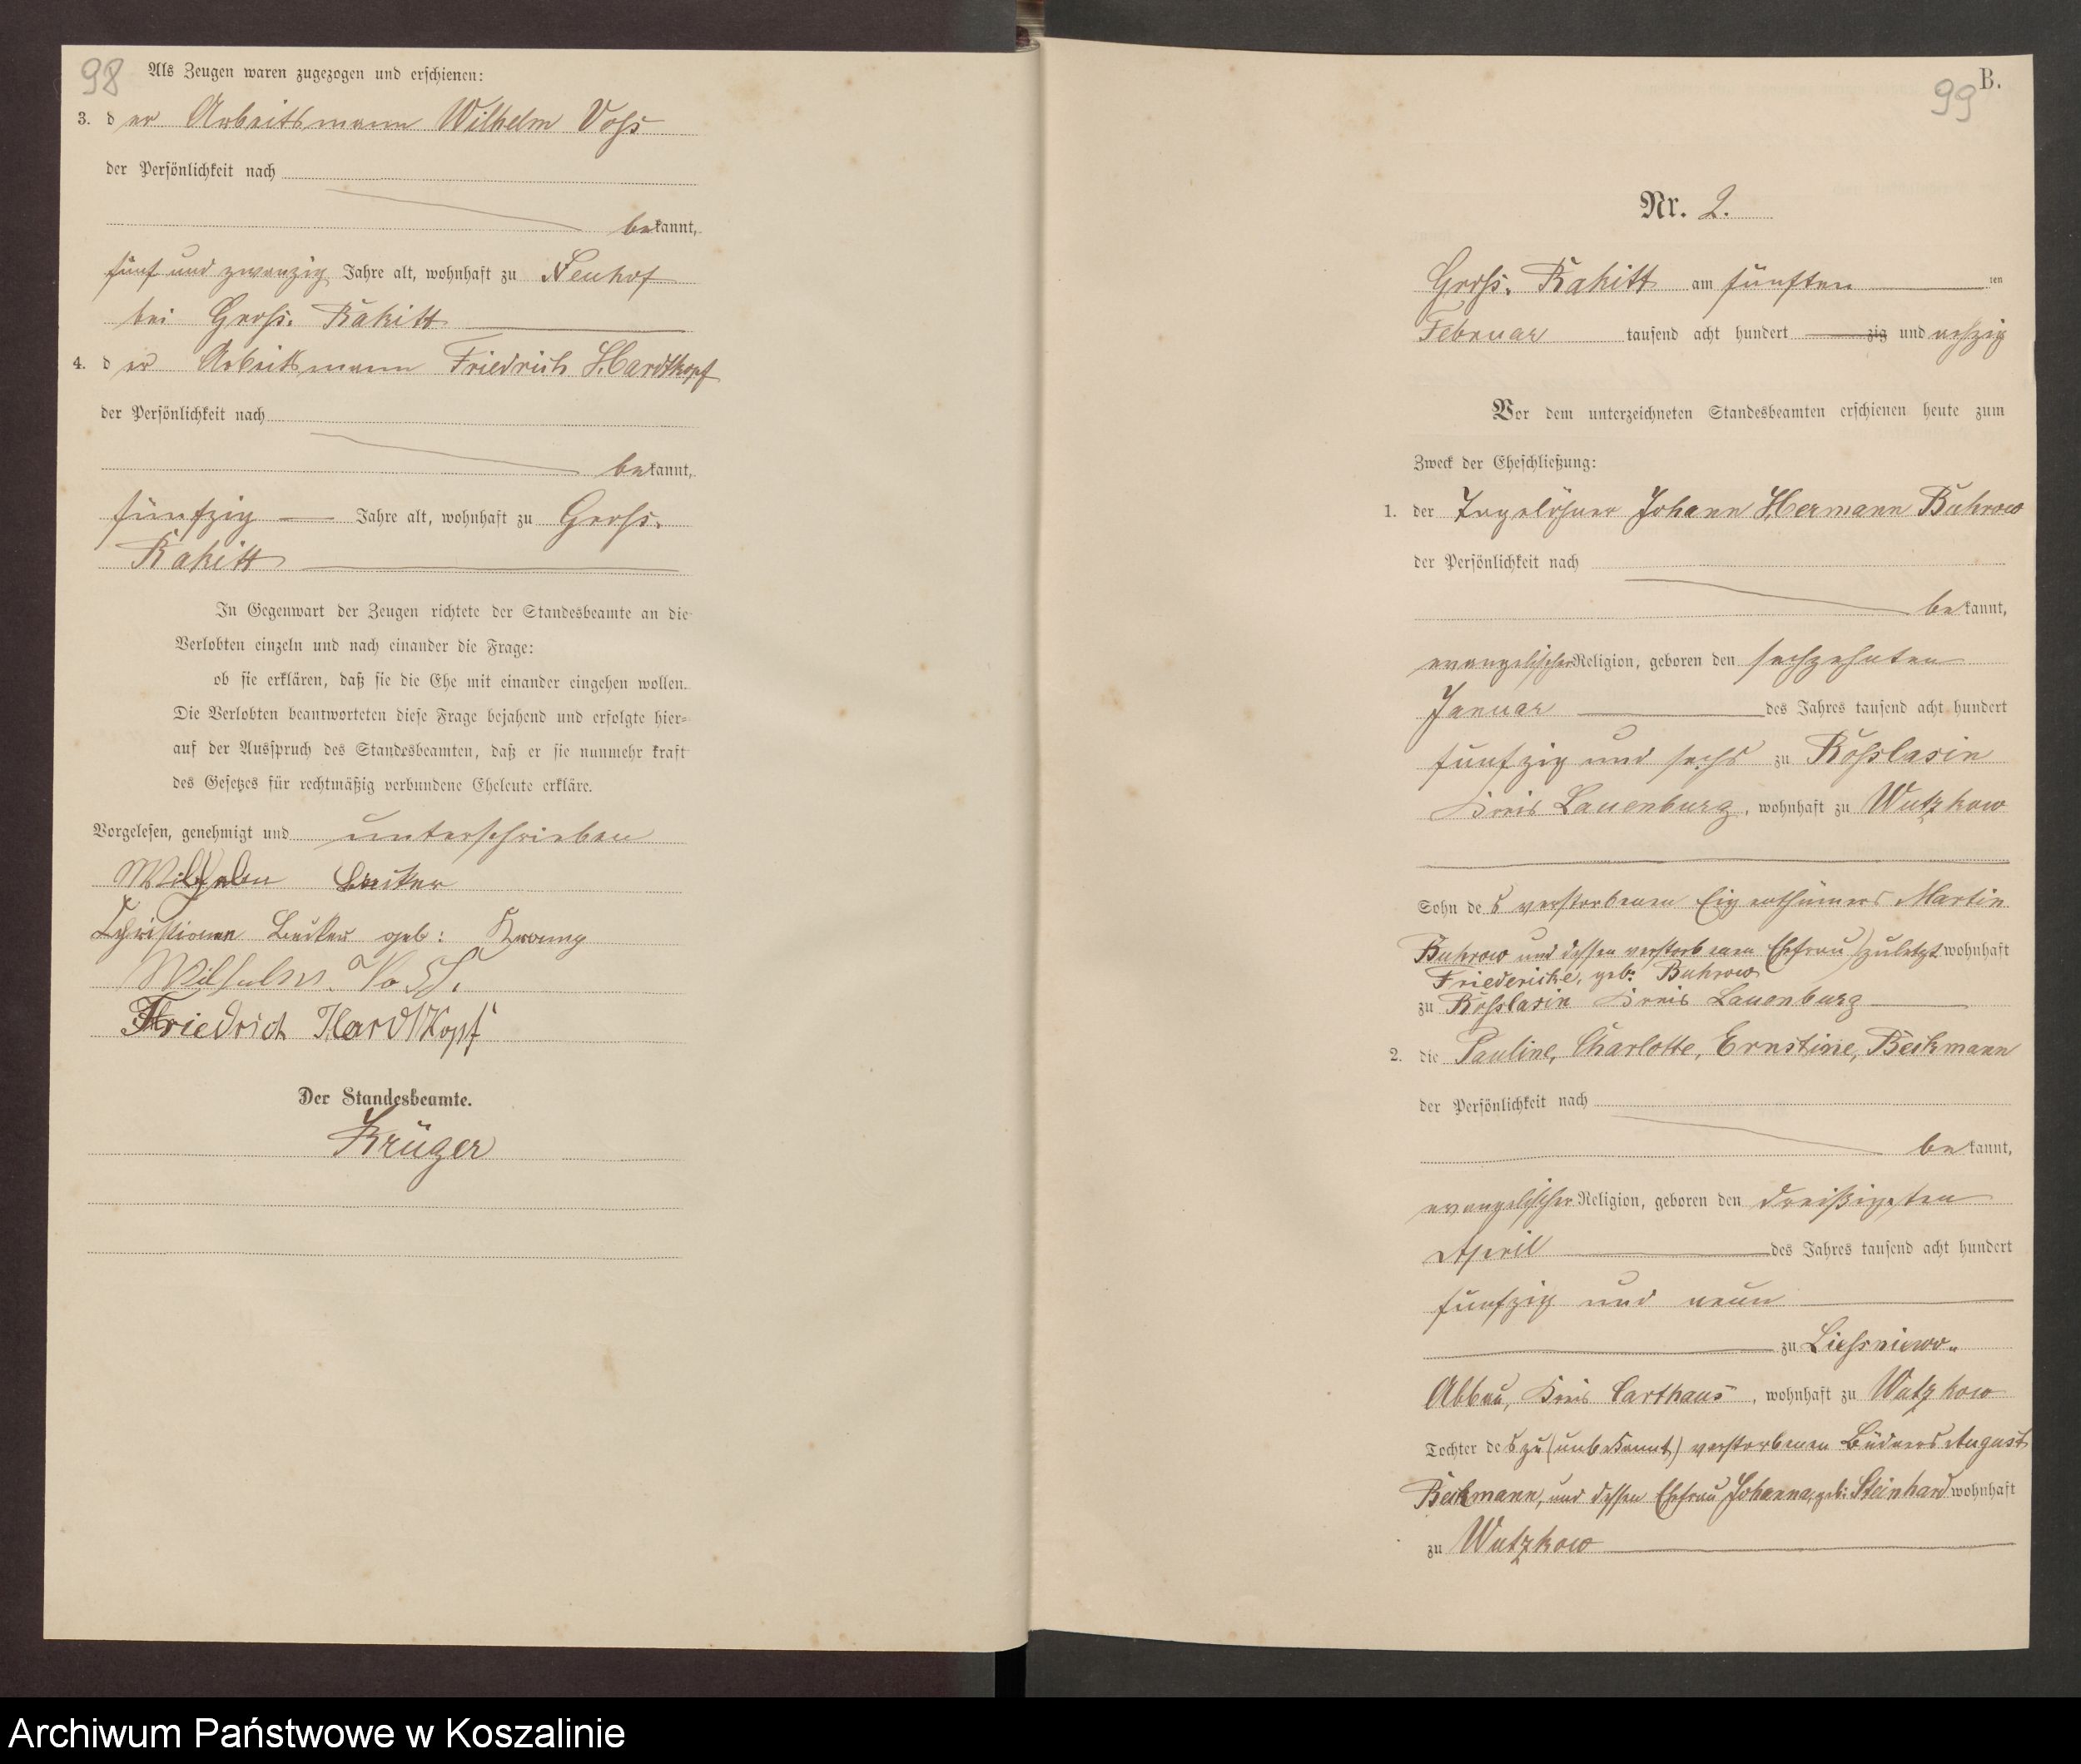 98
Als Zeugen waren zugezogen und erschienen:
3. der Arbeitsmann Wilhelm Voss
der Persönlichkeit nach
bekannt,
fünf und zwanzig Jahre alt, wohnhaft zu Neuhof
bei Gross. Rakitt
4. der Arbeitsmann Friedrich Hardtkopf
der Persönlichkeit nach
bekannt,
fünfzig Jahre alt, wohnhaft zu Gross.
Rakitt
In Gegenwart der Zeugen richtete der Standesbeamte an die
Verlobten einzeln und nach einander die Frage:
ob sie erklären, daß sie die Ehe mit einander eingehen wollen.
Die Verlobten beantworteten diese Frage bejahend und erfolgte hier=
auf der Ausspruch des Standesbeamten, daß er sie nunmehr kraft
des Gesetzes für rechtmäßig verbundene Eheleute erkläre.
Vorgelesen, genehmigt und unterschrieben
Wilhelm
geb:
Wilhelm Voss.
Friedrich Hardtkopf
Der Standesbeamte.
Krüger
B.
99
Nr. 2.
Gross. Rakitt am fünften ten
Februar tausend acht hundert zig und achzig
Vor dem unterzeichneten Standesbeamten erschienen heute zum
Zweck der Eheschließung:
1. der Tagelöhner Johann Hermann Buhrow
der Persönlichkeit nach
bekannt,
evangelischer Religion, geboren den sechzehnten
Januar des Jahres tausend acht hundert
fünfzig und sechs zu Roslasin
Kreis Lauenburg, wohnhaft zu Wutzkow
Sohn des verstorbenen Eigenthümers Martin
Buhrow und dessen verstorbenen Ehefrau zuletzt wohnhaft
Friedericke, geb: Buhrow
zu Roslasin Kreis Lauenburg
2. die Pauline, Charlotte, Ernstine, Beikmann
der Persönlichkeit nach
bekannt,
evangelischer Religion, geboren den dreißigsten
April des Jahres tausend acht hundert
fünfzig und neun
zu Liessniewo
Abbau, Kreis Carthaus, wohnhaft zu Wutzkow
Tochter des zu (unbekannt) verstorbenen Büdners August
Beikmann, und dessen Ehefrau Johanna, geb: Steinhard wohnhaft
zu Wutzkow
Archiwum Państwowe w Koszalinie